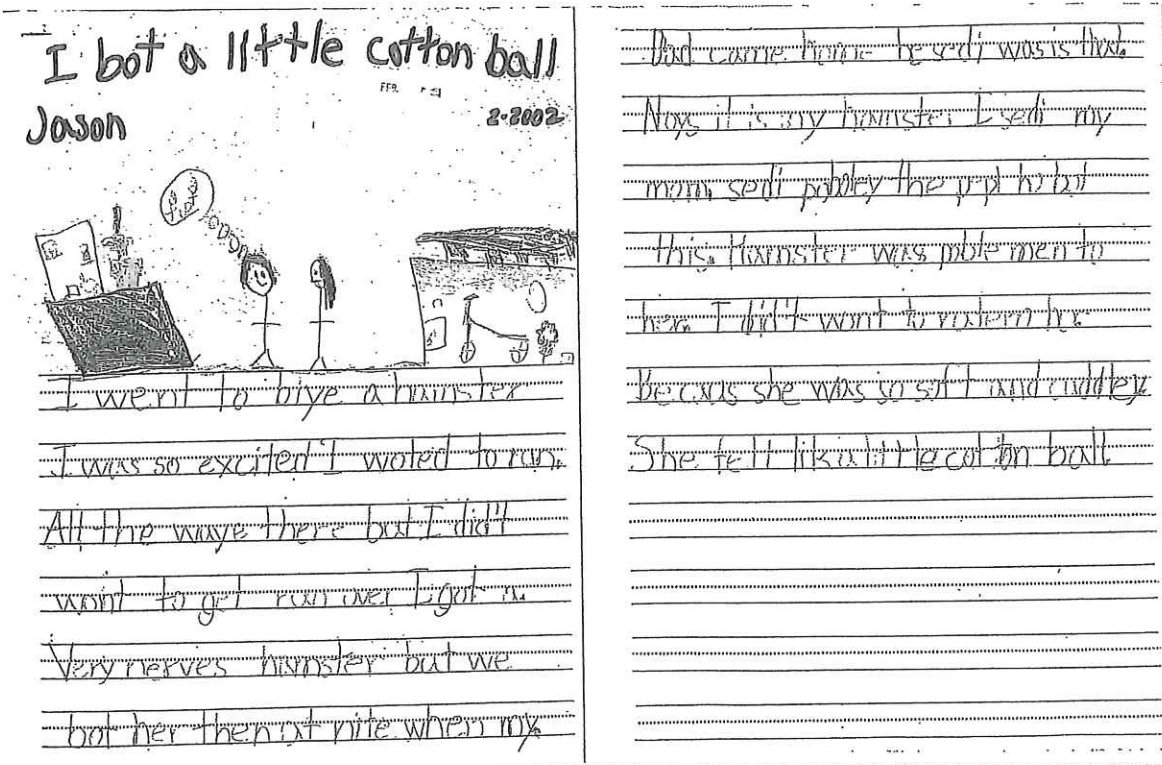 I bot a little cotton ball
Jason
2-2002
I went to biye a hamster
I was so excited I woted to run.
All the waye there but I did't
wont to get run over I got a.
Very nerves hamster but we
bot her then at nite when my
Dad came home he sedi was is that.
Nays it is my hamster I sedi my
mom. sedi pobley the
this. Hamster was
her. I did't wont to
Becaus she was so soft and cuddley.
She felt lik a little cotton ball.